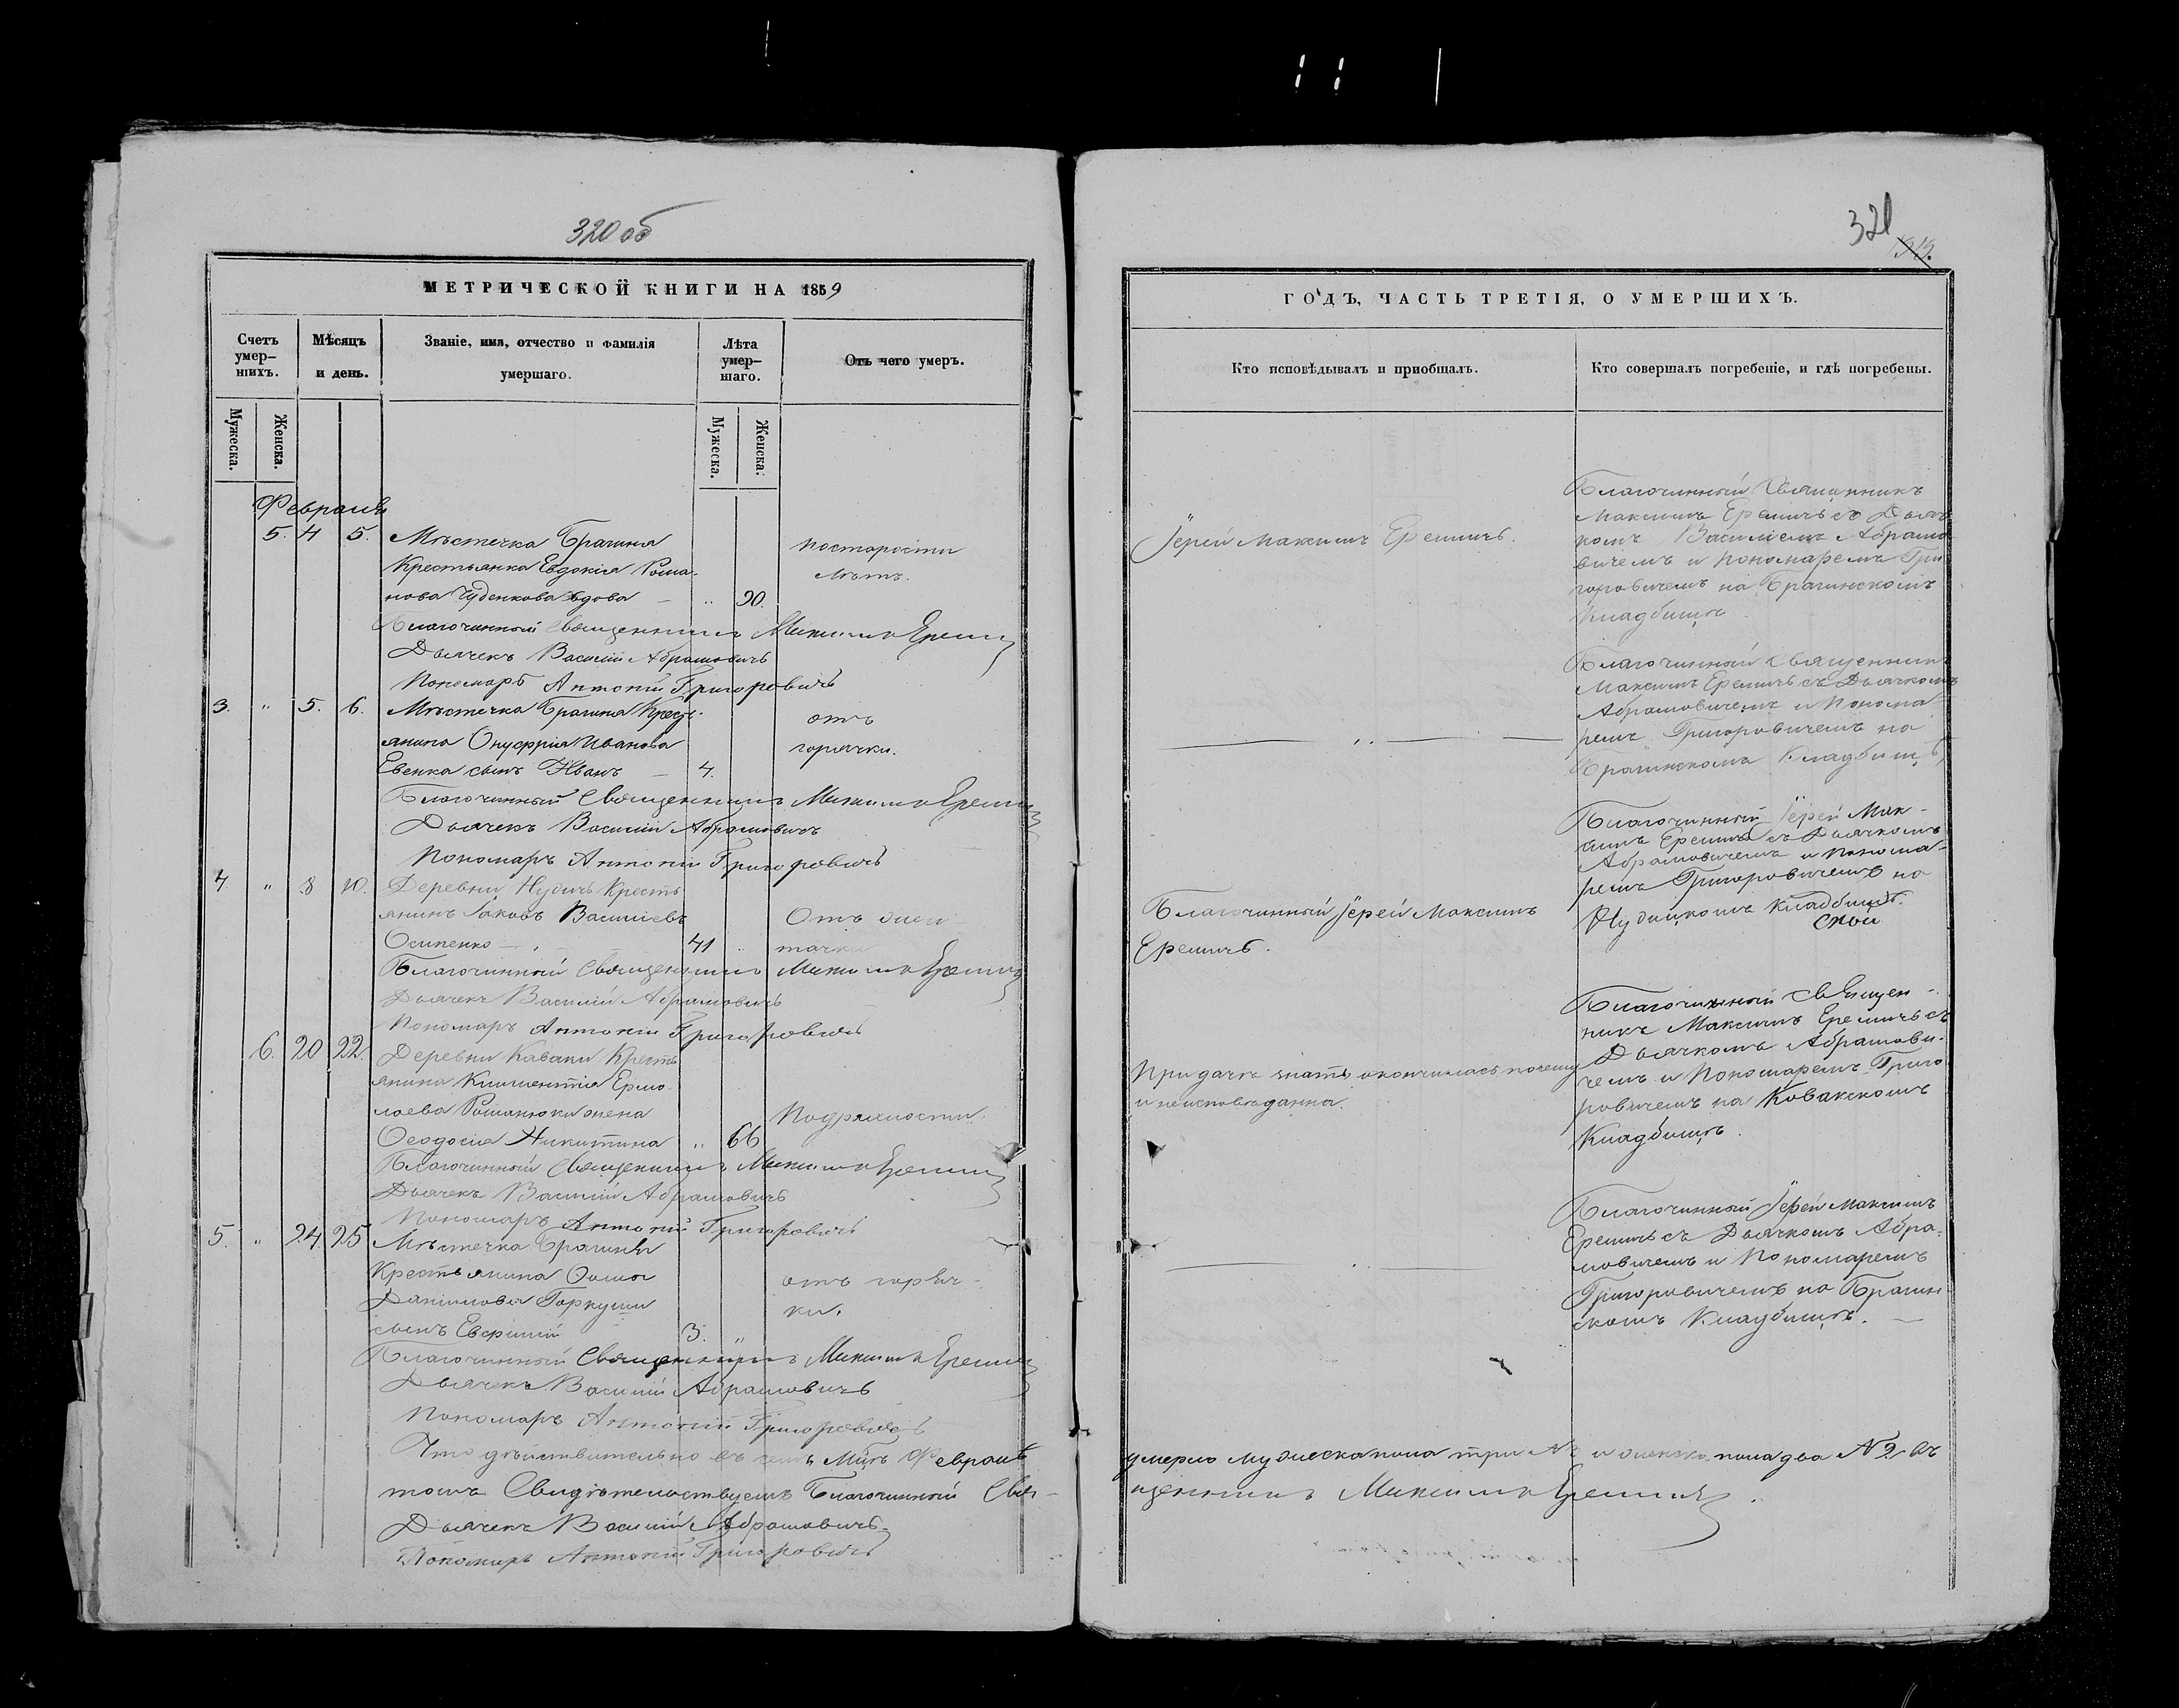 320 об
МЕТРИЧЕСКОЙ КНИГИ НА 1859
Счетъ умер-шихъ.
Мѣсяцъ и день.
Званіе, имя, отчество и фамилія умершаго.
Лѣта умер-шаго.
Отъ чего умеръ.
Мужеска.
Женска.
Мужеска.
Женска.
Февраля
5. 4 5. Мѣстечка Брагина
постарости
Крестьянка Евдокія Рома-
лѣтъ.
нова Чуденкова вдова — " 90.
Благочинный Священникъ Максимъ Еремичъ
Дьячекъ Василій Абрамовичъ
Пономарь Антоній Григоровичъ
3. " 5. 6. Мѣстечка Брагина Крест-
отъ
янина Онуфрія Иванова
горячки.
Евенка сынъ Иванъ — 4.
Благочинный Священникъ Максимъ Еремичъ
Дьячекъ Василій Абрамовичъ
Пономарь Антоній Григоровичъ
4. " 8. 10. Деревни Нудичъ Кресть
янинъ Іаковъ Василіевъ
Отъ
Осипенко — 41 "
Благочинный Священникъ Максимъ Еремичъ
Дьячекъ Василій Абрамовичъ
Пономарь Антоній Григоровичъ
6. 20 22. Деревни Каваки Кресть
янина Климентія Ермо-
лаева Романюки жена
Подряхлости.
Ѳеодосія Никитина " 66
Благочинный Священникъ Максимъ Еремичъ
Дьячекъ Василій Абрамовичъ
Пономарь Антоній Григоровичъ
5. " 24. 25 Мѣстечка Брагина
Крестьянина Ѳомы
отъ горяч-
Даніилова Горкуши
ки.
сынъ 3. "
Благочинный Священникъ Максимъ Еремичъ
Дьячекъ Василій Абрамовичъ
Пономарь Антоній Григоровичъ
Что дѣйствительно въ семъ Мцѣ Февралѣ
томъ Свидѣтельствуемъ Благочинный Свя-
Дьячекъ Василій Абрамовичъ
Пономарь Антоній Григоровичъ
321
ГОДЪ, ЧАСТЬ ТРЕТІЯ, О УМЕРШИХЪ.
Кто исповѣдывалъ и пріобщалъ.
Кто совершалъ погребеніе, и гдѣ погребены.
Іерей Максимъ Еремичъ.
Благочинный Священникъ
Максимъ Еремичъ съ Дьяч-
комъ Василіемъ Абрамо
вичемъ и Пономаремъ Гри
горовичемъ на Брагинскомъ
Кладбищѣ
— " —
Благочинный Священникъ
Максимъ Еремичъ съ Дьячкомъ
Абрамовичемъ и Понома-
ремъ Григоровичемъ на
Брагинскомъ Кладбищѣ
Благочинный Іерей Максимъ
Еремичъ.
Благочинный Іерей Мак-
симъ Еремичъ съ Дьячкомъ
Абрамовичемъ и Понома-
ремъ Григоровичемъ на
Нудицкомъ кладбищѣ.
При дачѣ знать окончилась почему
и неисповѣданна.
Благочинный Священ-
никъ Максимъ Еремичъ съ
Дьячкомъ Абрамови-
чемъ и Пономаремъ Григо
ровичемъ на Ковакскомъ
Кладбищѣ.
Благочинный Іерей Максимъ
Еремичъ съ Дьячкомъ Абра-
мовичемъ и Пономаремъ
Григоровичемъ на Брагин-
скомъ Кладбищѣ. —
умерло мужеска пола три и женска пола два № 2. въ
щенникъ Максимъ Еремичъ.